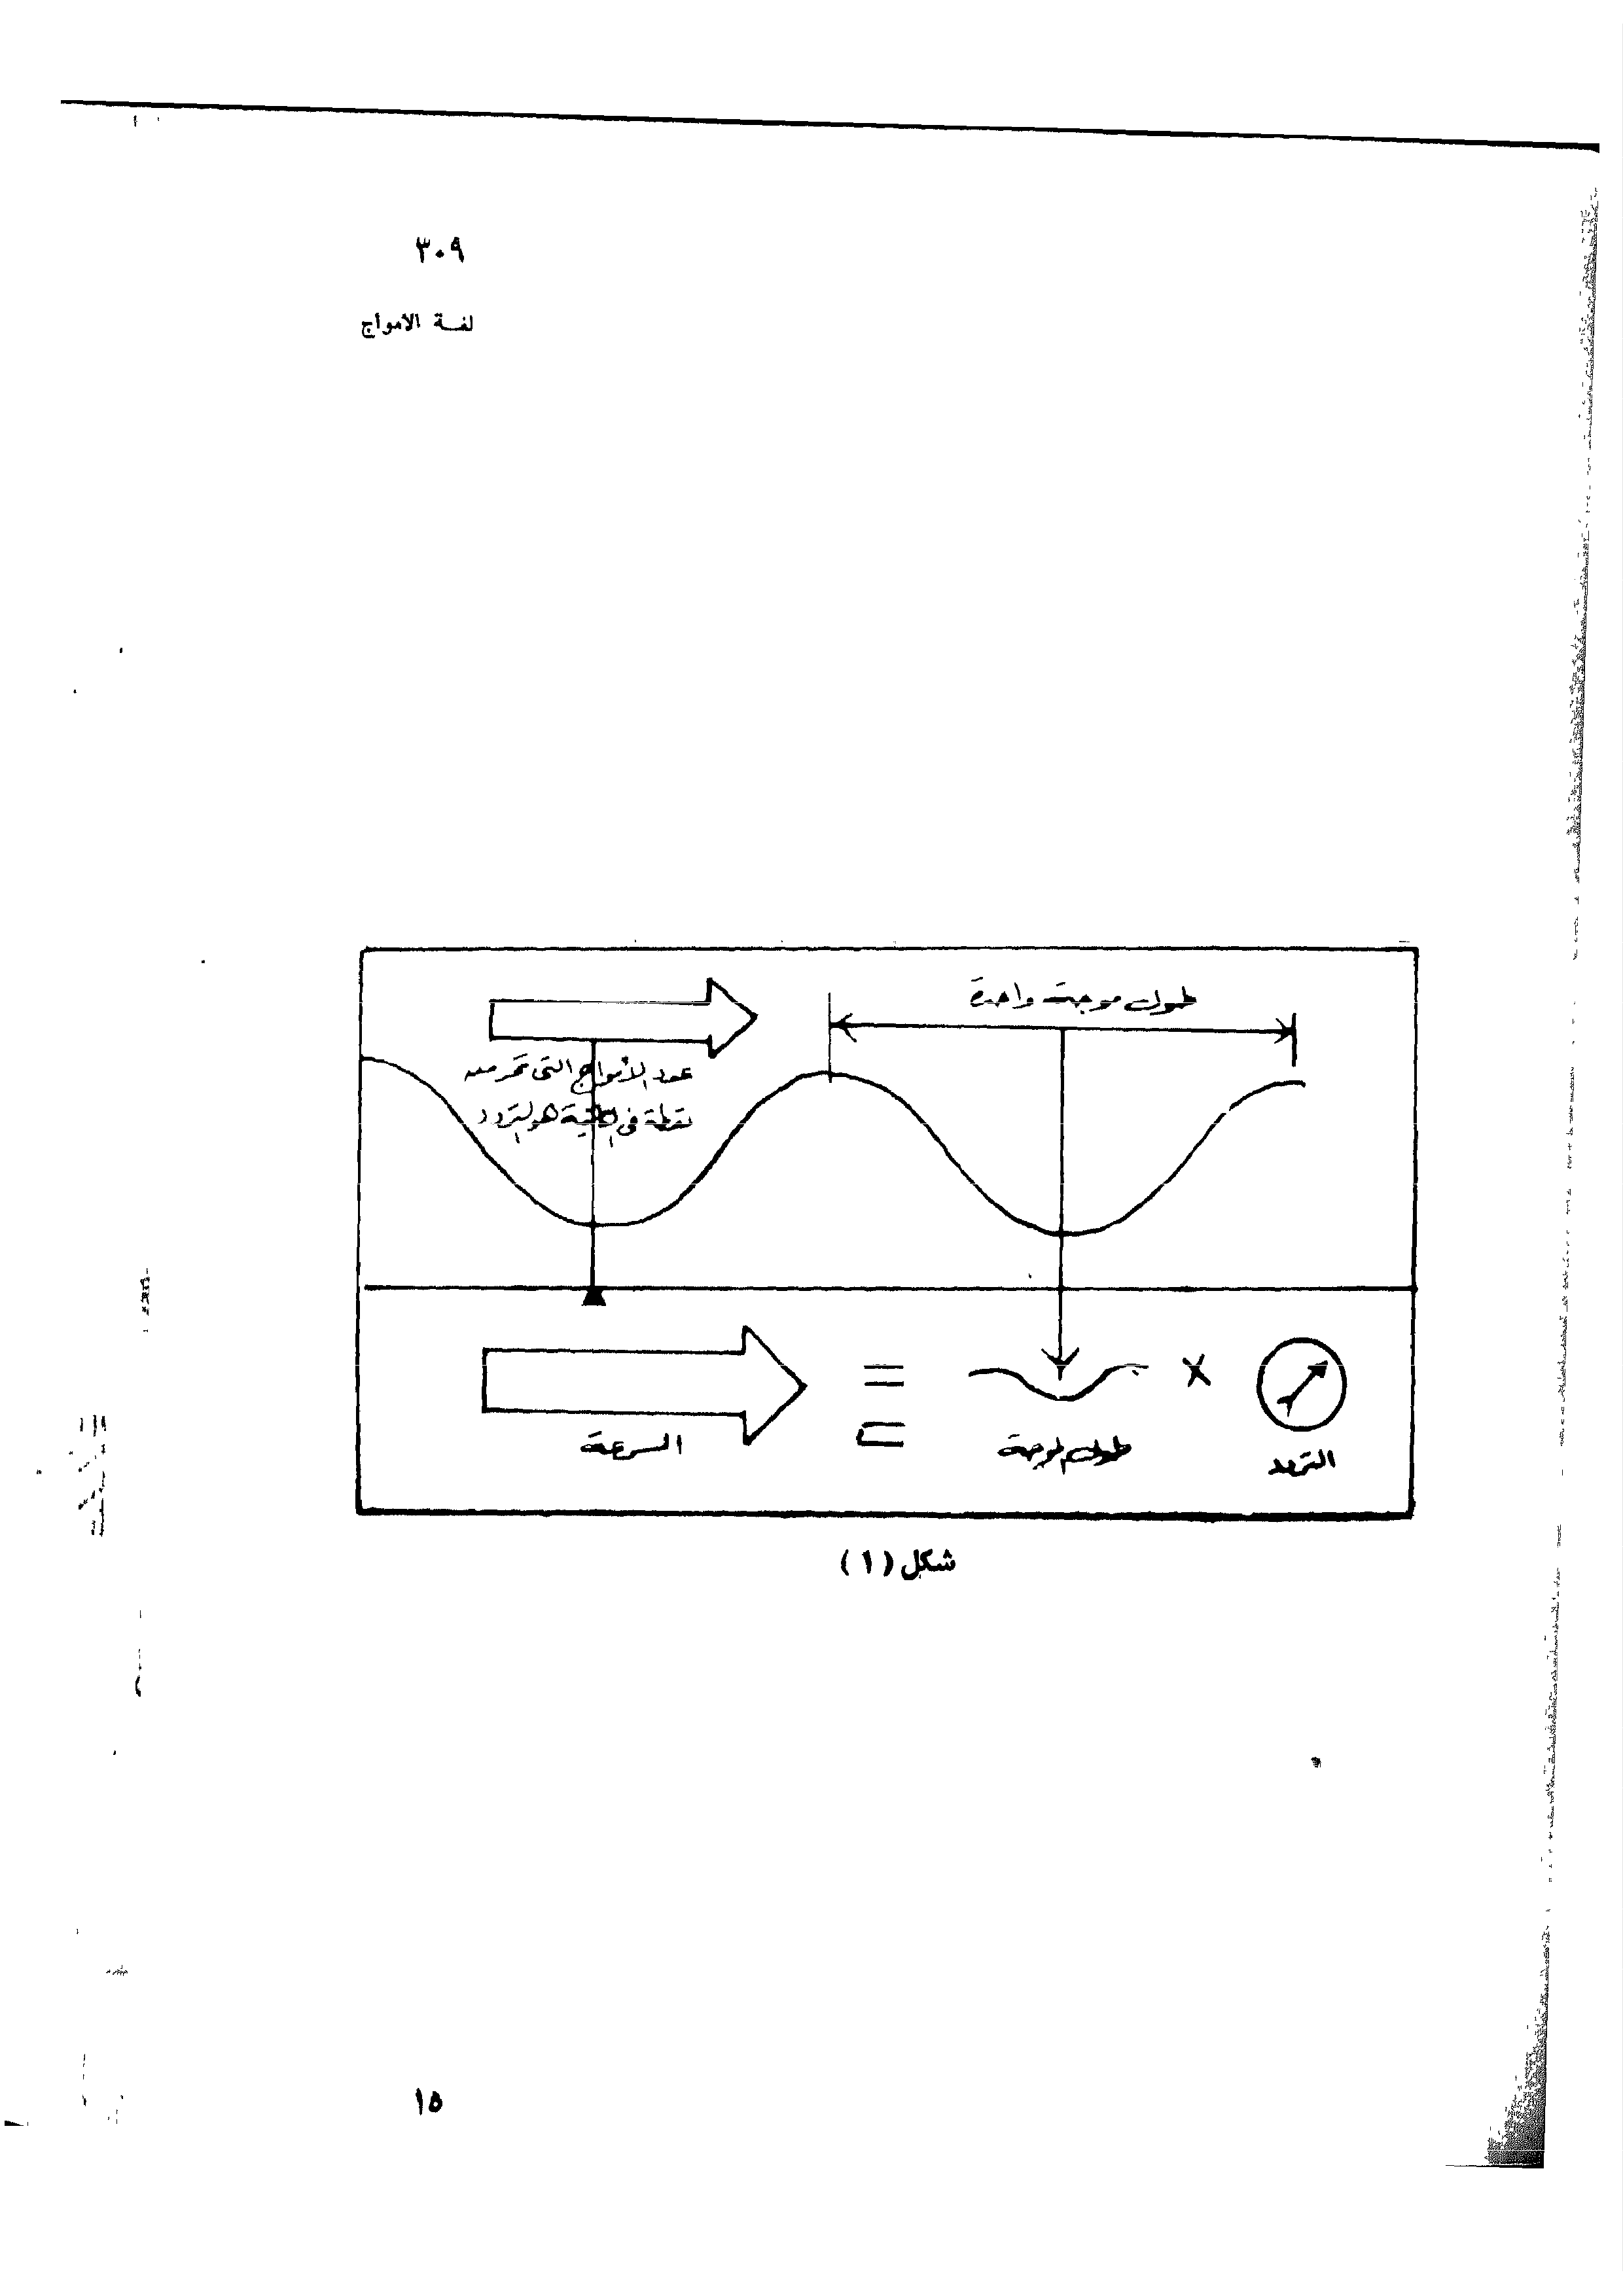 ٣٠٩
لغة الامواج
طول موجة واحدة
عدد الأمواج التى تمر من
نقطة فى الثانية هو التردد
= × 
السرعة طول الموجة التردد
شكل (١)
١٥